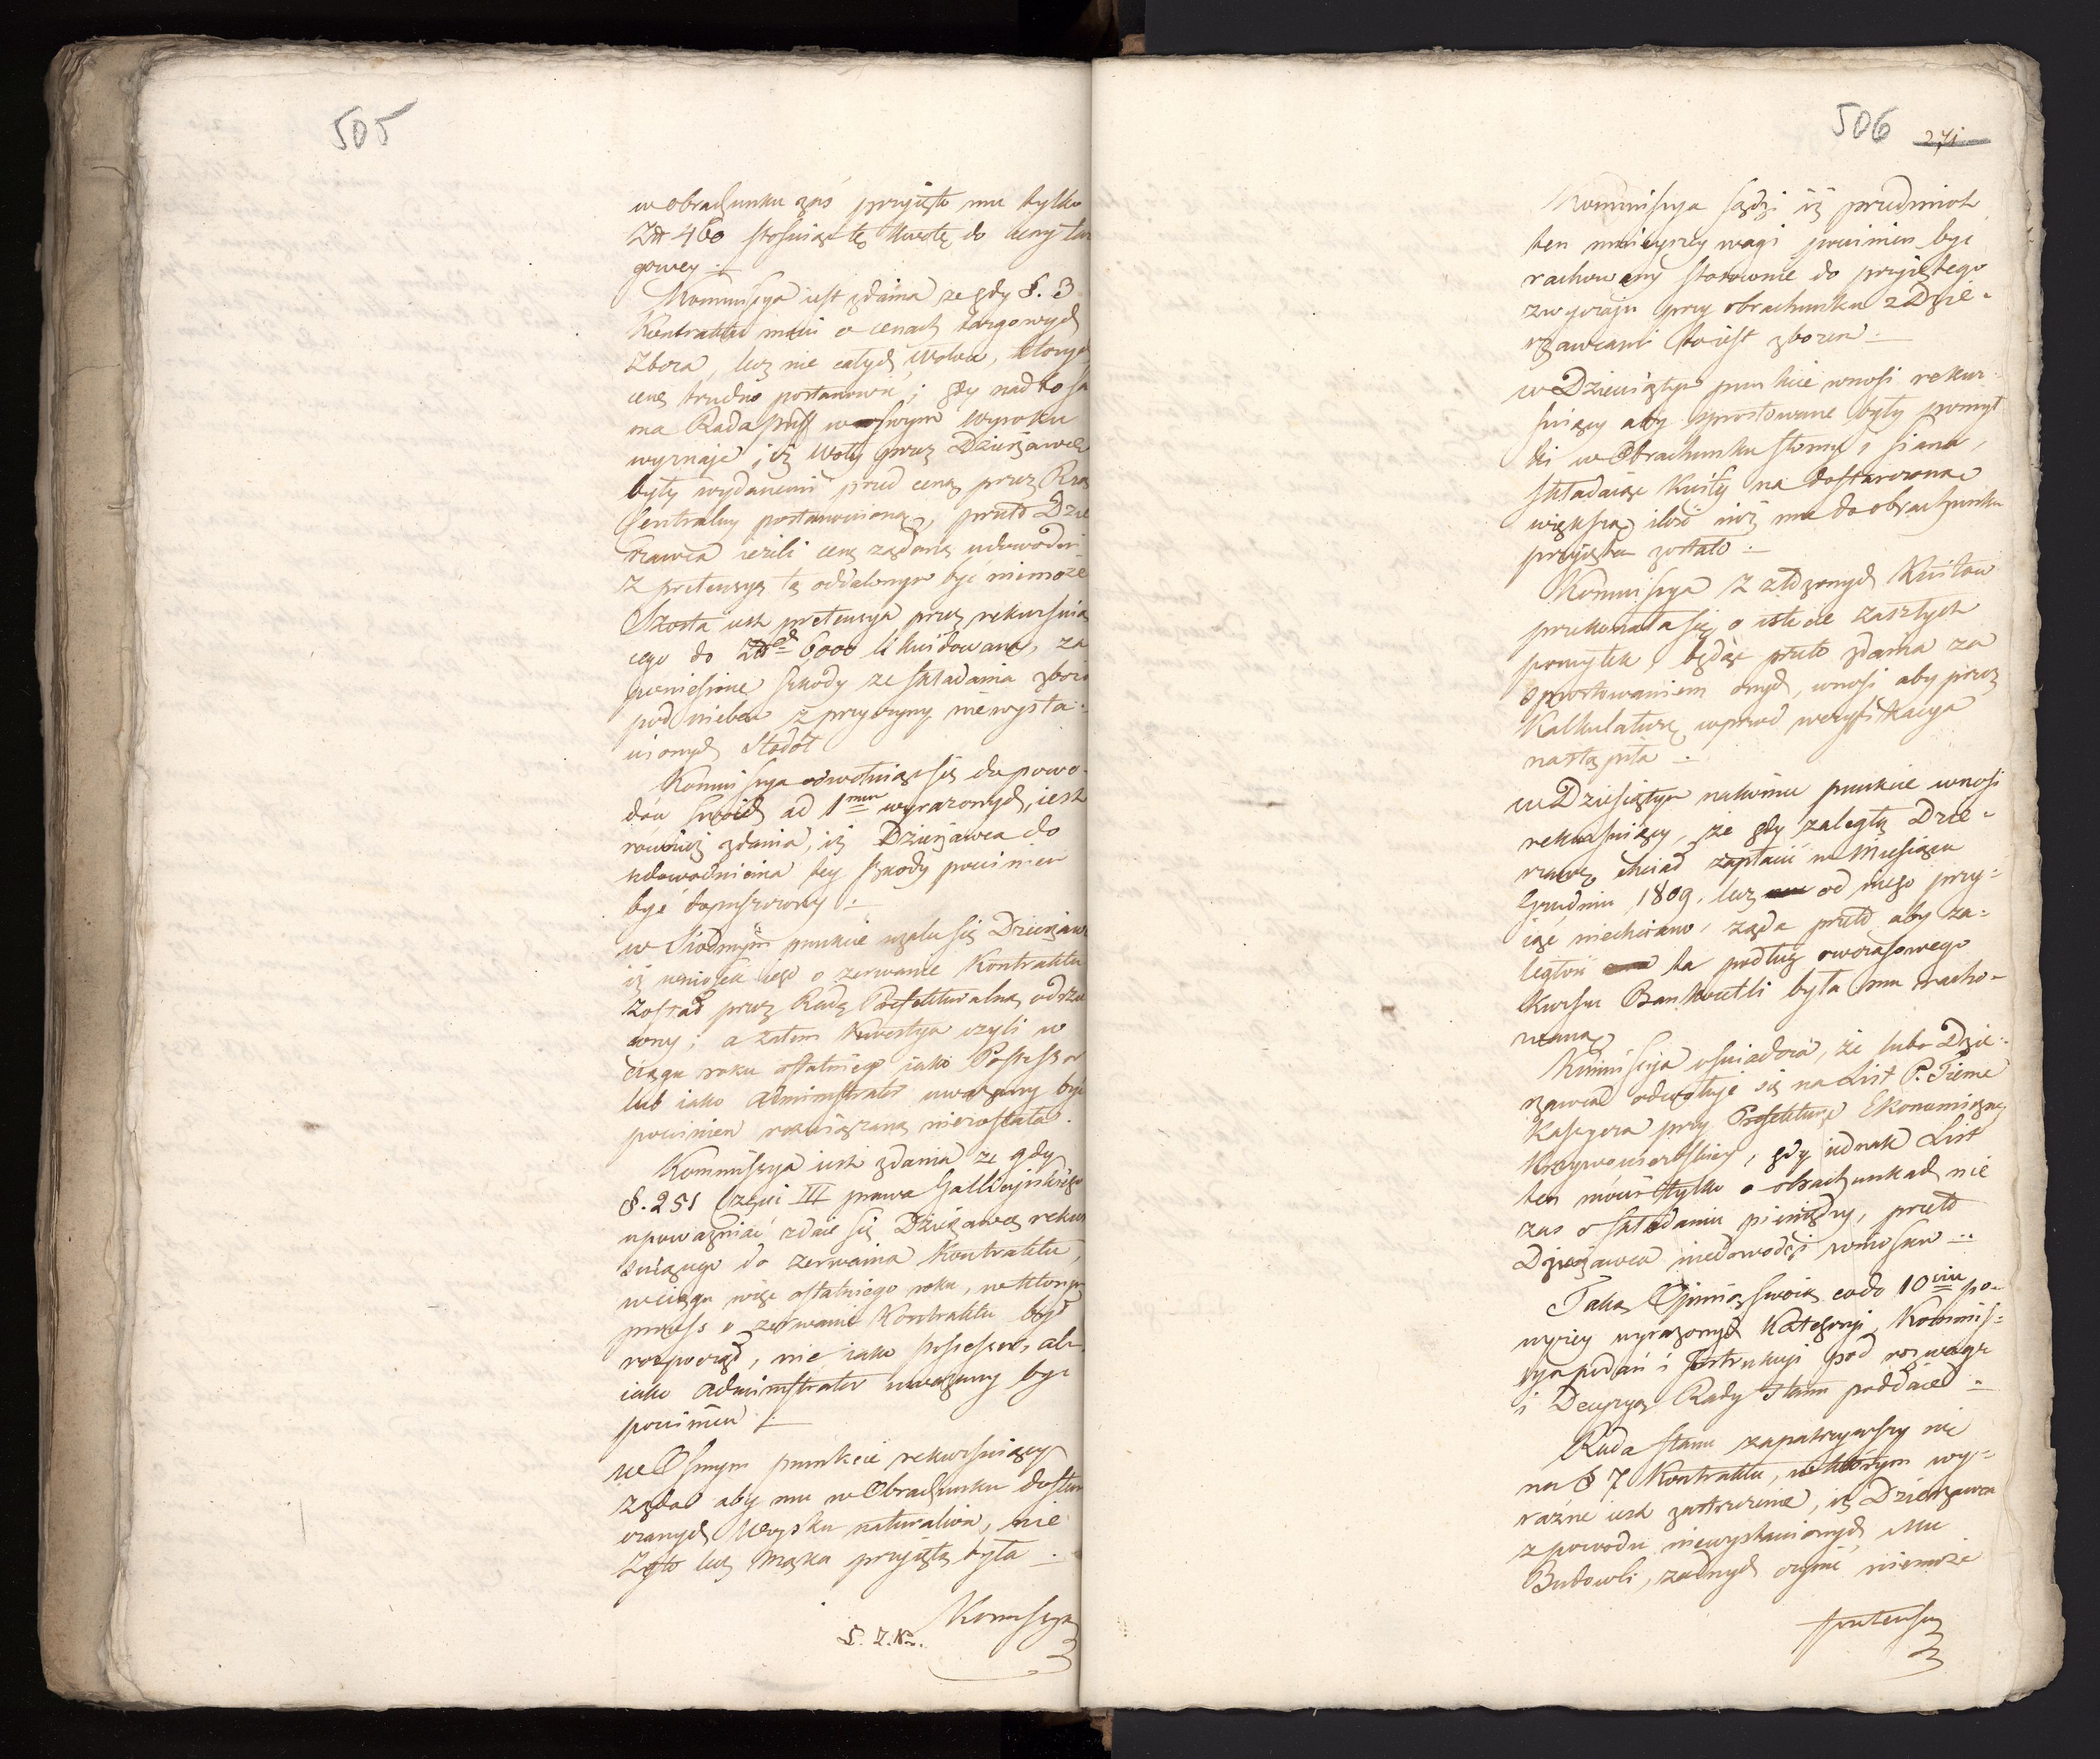 505
w obrachunku zaś przyięto mu tylko
Złł 460 stosuiąc tę kwotę do ceny tar
gowey.
Kommissya iest zdania ze gdy §. 3
Kontraktu mówi o cenach targowych
zboża, lecz nie całych wołów, których
cenę trudno postanowić; gdy nadto sa
ma Rada Preff w swym wyroku
wyznaje, iż woły przez Dzierżawcę
były wydanemi pred ceną przez Rząd
Centralny postanowioną, przeto Dzie
rżawca ieżeli cenę żądaną udowodni
z pretensyą tą oddalonym być niemoże
Szosta iest pretensya przez rekursuią
cego do Złł 6000 likwidowana, za
poniesione szkody ze składania zboża
pod niebem z przyczyny niewysta-
wionych Stodół
Kommissya odwołuiąc się do powo-
dów swoich ad 1mum wyrażonych, iest
również zdania, iż Dzierżawca do
udowodnienia tey szkody powinien
być dopuszczony.
w Siódmym punkcie użala się Dzierżawc
iż wniosek iego o zerwanie Kontraktu
został przez Radę Prefekturalną odrzu
cony; a zatem kwestya czyli w
ciągu roku ostatniego iako Possessor
lub iako Administrator uważany być
powinien rozwiązaną niezostała.
Kommissya iest zdania ze gdy
§. 251 Części III prawa Gallicyjskiego
upoważniać zdaie się Dzierżawcę rekur
suiącego do zerwania Kontraktu,
w ciągu więc ostatniego roku, w którym
process o zerwanie Kontraktu był
rozpoczęt, nie iako possessor, ale
iako Administrator uważany być
powinien.
W Osmym punkcie rekursuiący
żąda aby mu w Obrachunku dostar
czanych Woysku naturaliów, nie
Żyto lecz mąka przyięta była.
Kommissya
506 271
Kommissya sądzi iż przedmiot
ten mnieyszey wagi powinien być
rachowany stosownie do przyiętego
zwyczaju przy obrachunku z Dzie-
rżawcami to iest zbożem
w Dziewiątym punkcie wnosi rekur-
suiący aby sprostowane były pomył
ki w Obrachunku słomy i siana,
składaiąc Kwity na dostarczoną
większą ilość niż mu do obrachunku
przyięta zostało.
Kommissya z złożonych Kwitów
przekonała się o istocie zaszłych
pomyłek, będąc przeto zdania za
sprostowaniem onych, wnosi aby przez
Kalkulaturę wprzód weryfikacya
nastąpiła.
w Dziesiątym nakoniec punkcie wnosi
rekursuiący, że gdy zaległą Dzie-
rżawę chciał zapłacić w Miesiącu
Grudniu 1809. lecz od niego przy-
iąć niechciano, żąda przeto aby za-
ległość ta podług owczasowego
kursu Bankocetli była mu racho-
waną
Kommissya oświadcza, że lubo Dzie-
rżawca odwołuje się na List P. Tieme
Kassyera przy Prefekturze Ekonomiczney
, gdy iednak List
ten mówi tylko o obrachunkach nie
zas o składaniu pieniędzy, przeto
Dzierżawca niedowodzi wniosku
Taką Opinią swoią co do 10ciu po-
wyżey wyrażonych Kategoryi Kommis-
sya podań i Instrukcyi pod rozwagę
i Decyzyą Rady Stanu poddaie
Rada Stanu zapatrzywszy się
na § 7 Kontraktu, w którym wy-
raźne iest zastrzeżenie, iż Dzierżawca
z powodu niewystawionych Mu
Budowli, żadnych czynić niemoże
pretensyi